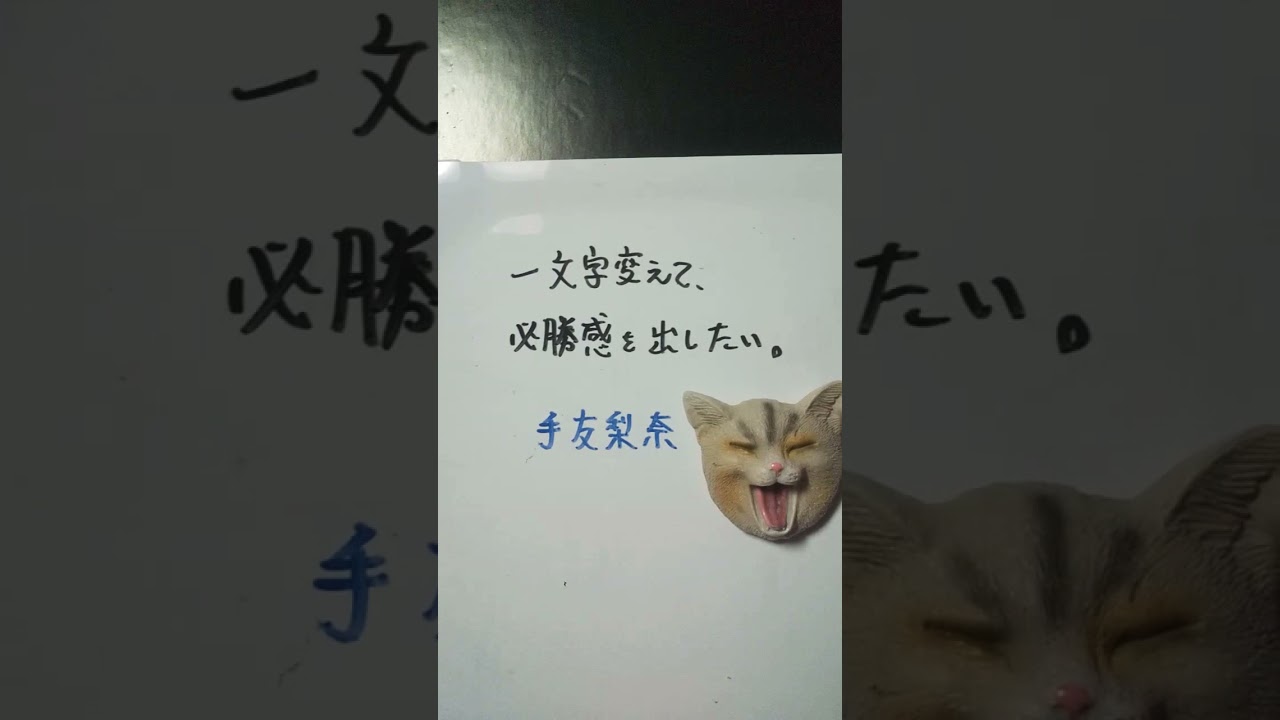 一文字変えて、
必勝感を出したい。
手友梨奈